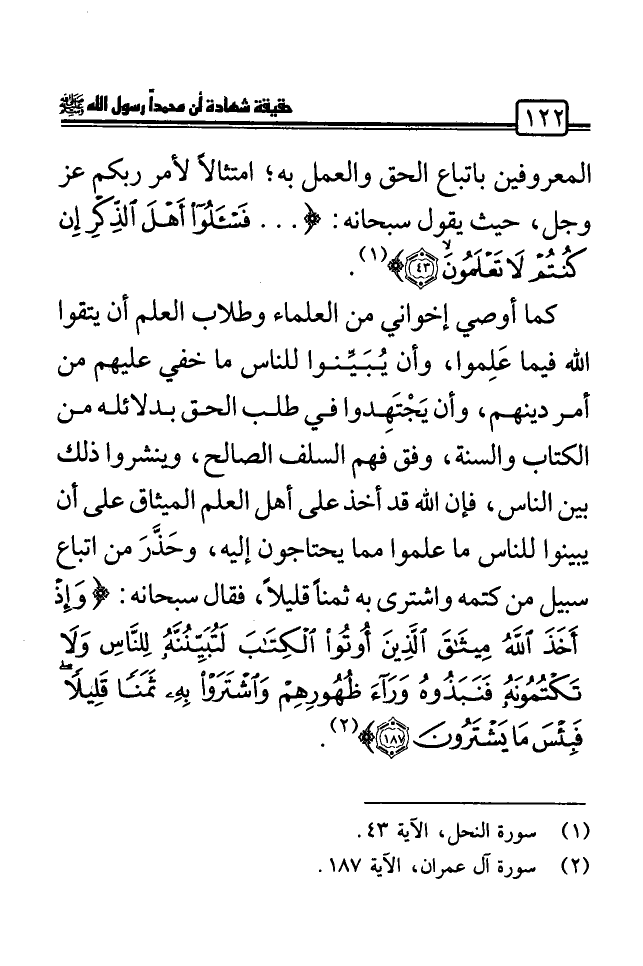 حقيقة شهادة أن محمداً رسول الله ﷺ
١٢٢
المعروفين باتباع الحق والعمل به؛ امتثالاً لأمر ربكم عز
وجل، حيث يقول سبحانه: ﴿ . . . فَسْـَٔلُوٓا۟ أَهْلَ ٱلذِّكْرِ إِن
كُنتُمْ لَا تَعْلَمُونَ ۙ ٤٣﴾(١).
كما أوصي إخواني من العلماء وطلاب العلم أن يتقوا
الله فيما عَلِموا، وأن يُبَيِّنوا للناس ما خفي عليهم من
أمر دينهم، وأن يَجْتَهِدوا في طلب الحق بدلائله من
الكتاب والسنة، وفق فهم السلف الصالح، وينشروا ذلك
بين الناس، فإن الله قد أخذ على أهل العلم الميثاق على أن
يبينوا للناس ما علموا مما يحتاجون إليه، وحَذَّرَ من اتباع
سبيل من كتمه واشترى به ثمناً قليلاً، فقال سبحانه: ﴿وَإِذْ
أَخَذَ ٱللَّهُ مِيثَٰقَ ٱلَّذِينَ أُوتُوا۟ ٱلْكِتَٰبَ لَتُبَيِّنُنَّهُۥ لِلنَّاسِ وَلَا
تَكْتُمُونَهُۥ فَنَبَذُوهُ وَرَآءَ ظُهُورِهِمْ وَٱشْتَرَوْا۟ بِهِۦ ثَمَنًا قَلِيلًا ۖ
فَبِئْسَ مَا يَشْتَرُونَ ١٨٧﴾(٢).
(١) سورة النحل، الآية ٤٣.
(٢) سورة آل عمران، الآية ١٨٧.